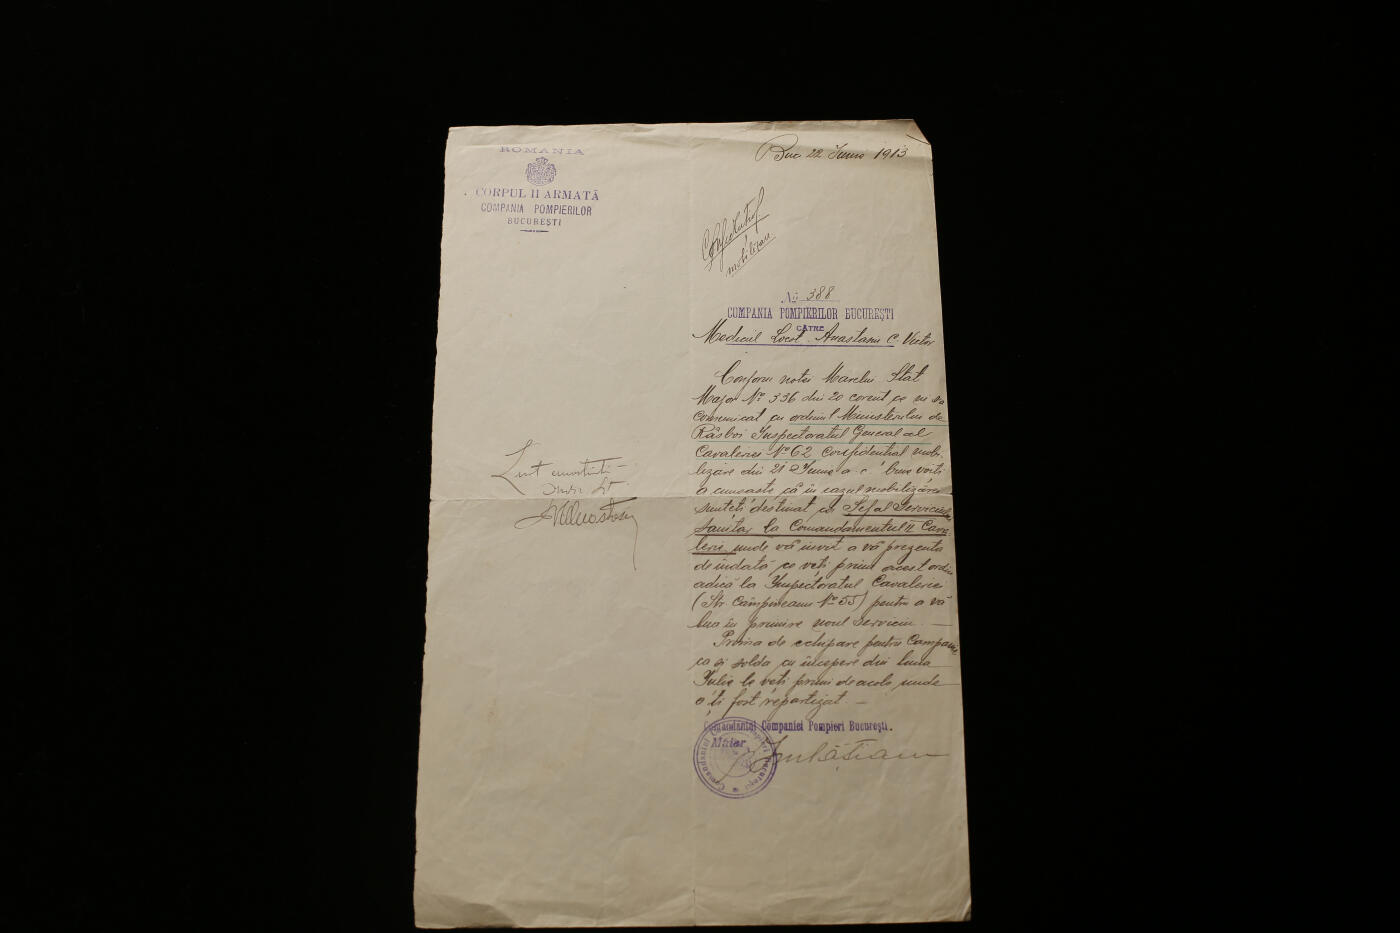 ROMANIA
CORPUL II ARMATĂ
COMPANIA POMPIERILOR
BUCUREŞTI
Buc 22 Iunie 1913
Confidential
mobilizare
No 388
COMPANIA POMPIERILOR BUCUREŞTI
CĂTRE
Medicul Locot. Anastasiu C. Victor
Conform notei Marelui Stat
Major No 336 din 20 corent ce ni s'a
comunicat cu ordinul Ministerului de
Răsboi Inspectoratul General al
Cavaleriei No 62 confidential mobi-
lizare din 21 Iunie a.c. bine voiti
a cunoaste că in cazul mobilizărei
sunteti destinat ca Sef al Serviciului
Sanitar la Comandamentul II Cava-
lerie unde vă invit a vă prezenta
de indată ce veti primi acest ordin
adică la Inspectoratul Cavaleriei
(Str. Câmpineanu No 55) pentru a vă
lua in primire noul serviciu. —
Prima de echipare pentru Campanie
ca si solda cu incepere din luna
Iulie le veti primi de acolo unde
a ti fost repartizat. —
Comandantul Companiei Pompieri Bucureşti.
Maior
Sunt